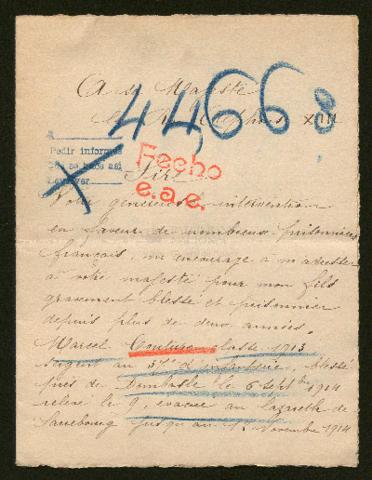 A sa Majesté
le Roi Alphonse XIII
44668
Pedir informes
Fecho
e.a.e.
Sire
Votre généreuse intervention
en faveur de nombreux prisonniers
français, m'encourage à m'adresser
à votre majesté pour mon fils
gravement blessé et prisonnier
depuis plus de deux années.
Marcel Couture classe 1913
Sergent au 37e d'infanterie, blessé
près de Dombasle le 6 Septbre 1914
relevé le 9, évacué au lazareth de
Sarrebourg jusqu'au Novembre 1914